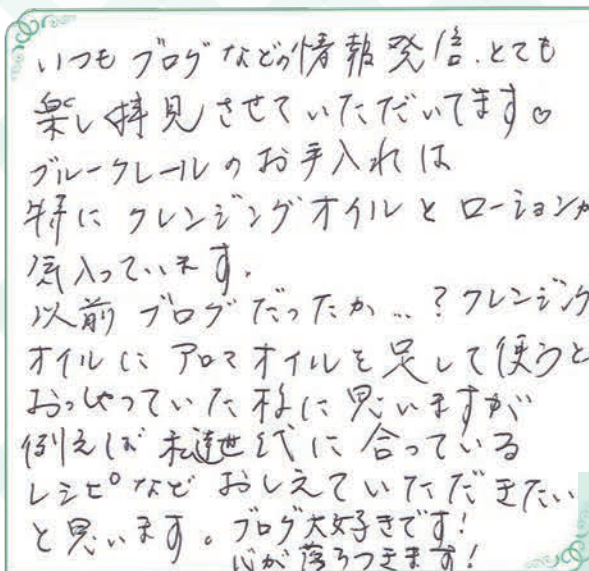 いつもブログなどの情報発信、とても
楽し拝見させていただいてます♡
ブルークレールのお手入れは
特にクレンジングオイルとローションが
気入っています。
以前ブログだったか…?クレンジング
オイルにアロマオイルを足して使うと
おっしゃっていた様に思いますが
例えば私達世代に合っている
レシピなどおしえていただきたい
と思います。ブログ大好きです!
心が落ちつきます!